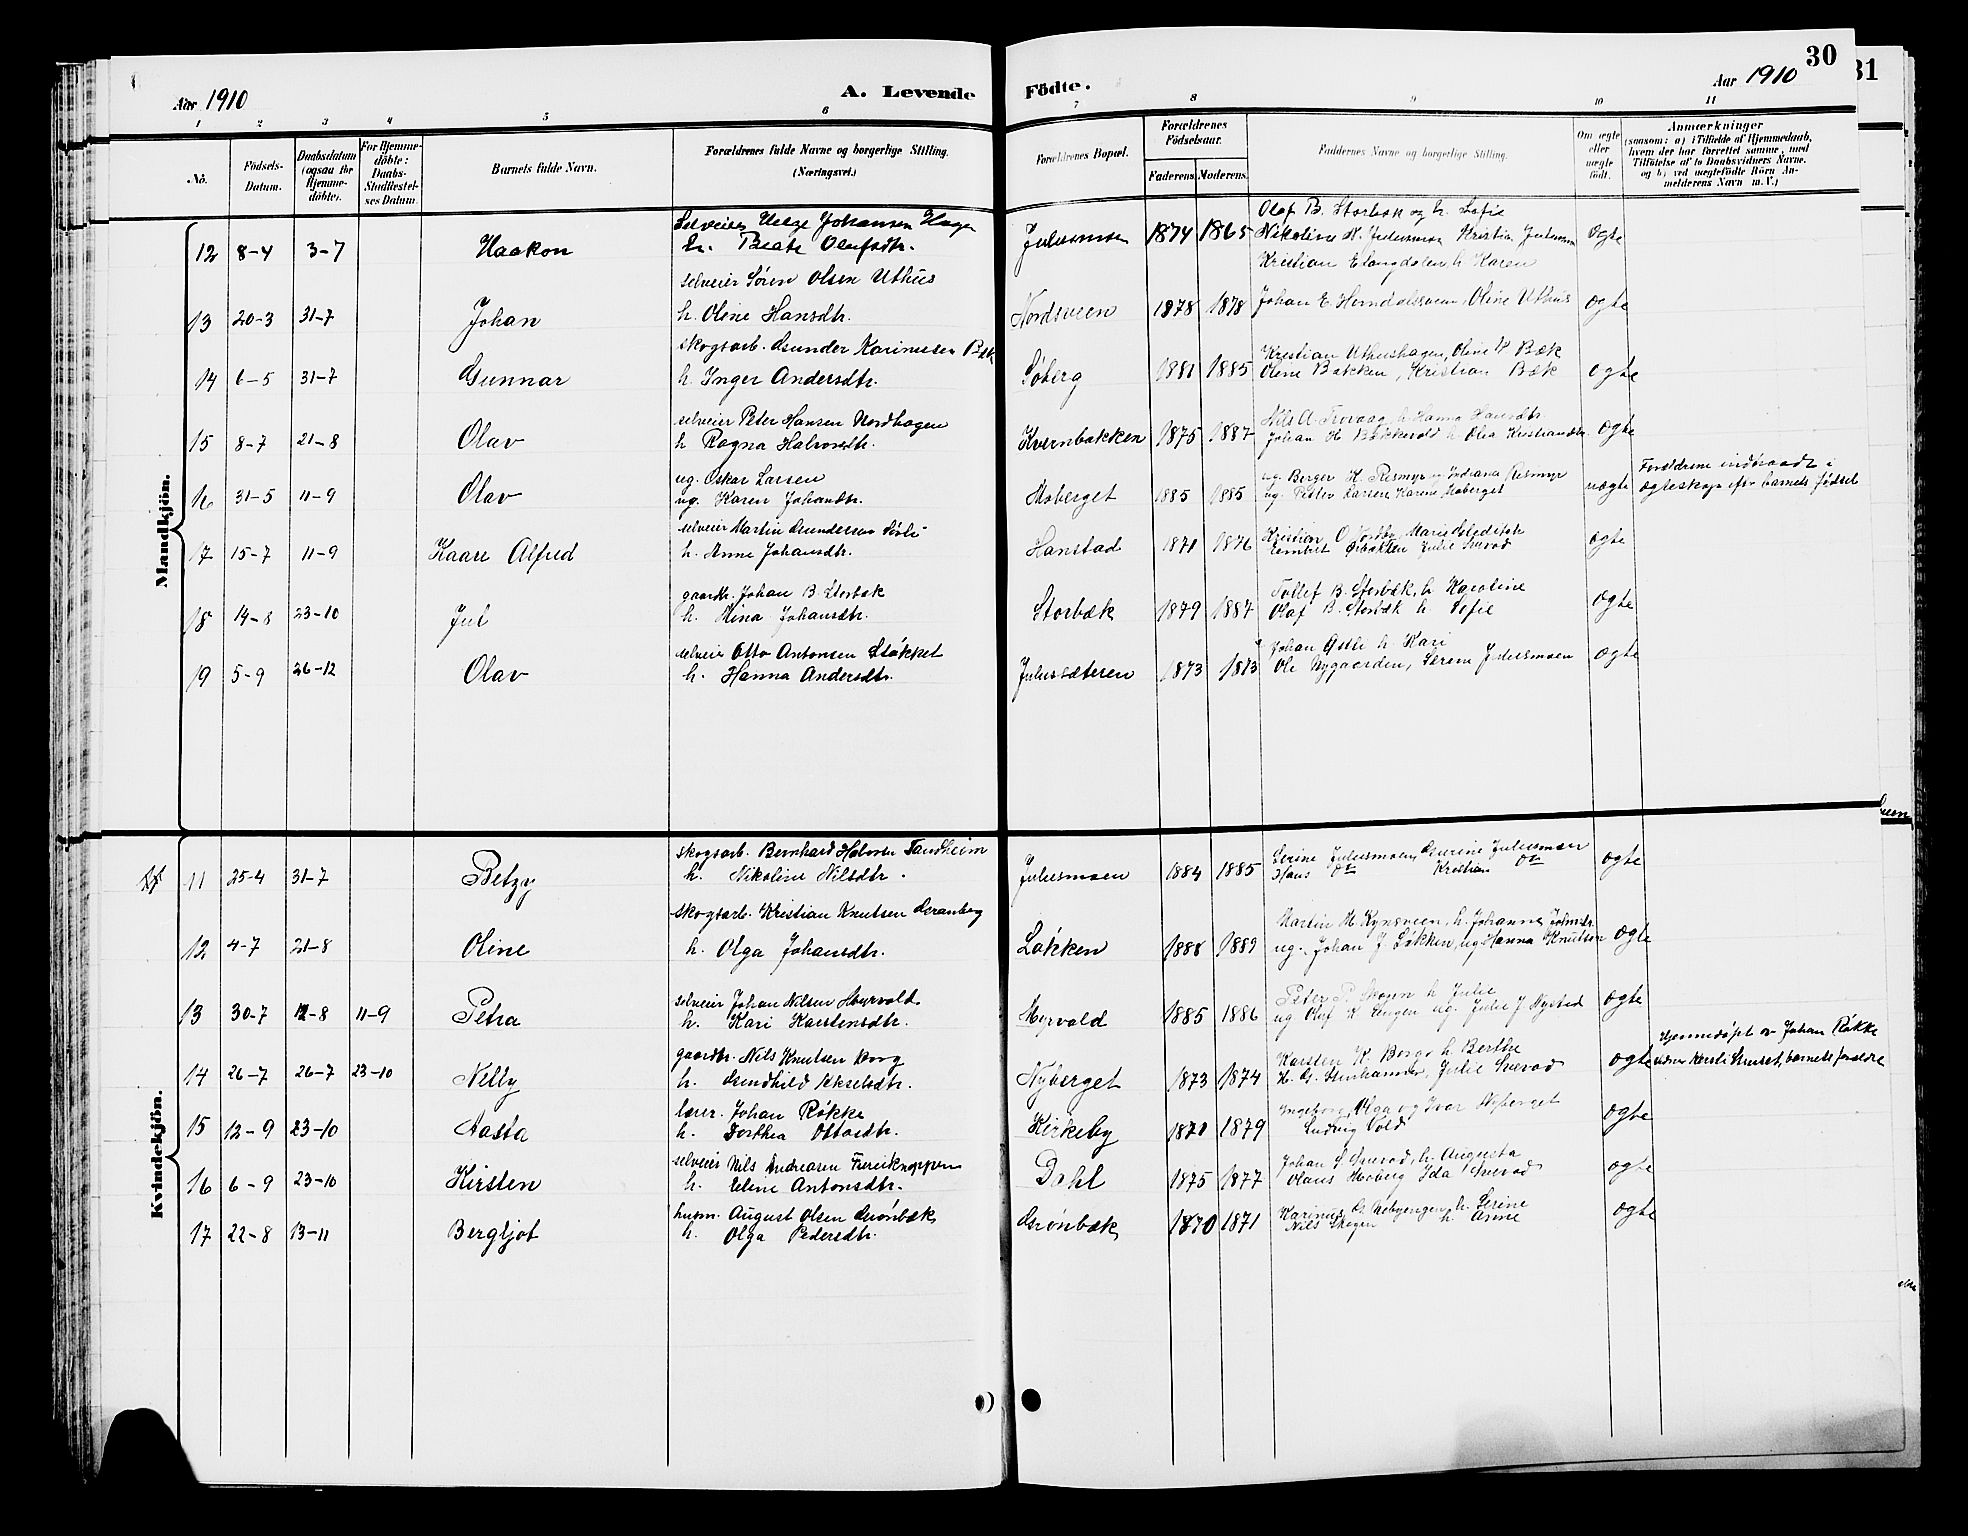 30
31
Aar 1910
A. Levende
Födte.
Aar 1910
1 2 3 4 5 6 7 8 9 10 11
No.
Födsels-Datum.
Daabsdatum (ogsaa for Hjemme-döbte).
For Hjemme-döbte: Daabs-Stadfæstel-ses Datum.
Barnets fulde Navn.
Forældrenes fulde Navne og borgerlige Stilling.
(Næringsvei.)
Forældrenes Bopæl.
Forældrenes Födselsaar.
Faderens. Moderens.
Faddernes Navne og borgerlige Stilling.
Om ægte eller uægte født.
Anmærkninger
(saasom: a) i Tilfælde af Hjemmedaab,
hvem der har forrettet samme, med
Tilföielse af to Daabsvidners Navne.
og b) ved uægtefödte Börn An-
melderens Navn m. V.)
Mandkjön.
Selveier Helge Johansen Hage Olof B. Storbæk og h. Sofie
12 8-4 3-7 Haakon h. Beate Olufsdtr. Julusmoen 1874 1865 Nikoline H. Julusmoen Kristian Julusmoen ægte
Kristian Elangdalen h. Karen
selveier Søren Olsen Uthus
13 20-3 31-7 Johan h. Oline Hansdtr. Nordsveen 1878 1878 Johan E. Horndalssveen, Oline Uthus ægte
skogsarb. Gunder Karinusen Bæk Kristian Uthushagen, Oline Bæk
14 6-5 31-7 Gunnar h. Inger Andersdtr. Søberg 1881 1885 Oline Bakken, Kristian Bæk ægte
selveier Peter Hansen Nordhagen Nils A. h. Hanna Hansdtr.
15 8-7 21-8 Olav h Ragna Halvorsdtr. Kvernbakken 1875 1887 Johan H. Bakkevold h. Olea Kristiansdtr. ægte
ug. Oskar Larsen ug. Berger H. Rismyr og Indiana Rismyr Forældrene indtraadt i
16 31-5 11-9 Olav ug. Karen Johansdtr. Moberget 1885 1885 ug. Peder Larsen Karen Moberget uægte ægteskap efter barnets fødsel
selveier Martin Gundersen Sørli
17 15-7 11-9 Kaare Alfred h. Anne Johansdtr. Hanstad 1871 1876 Julie Sverod ægte
gaardbr. Johan B. Storbæk Tollef B. Storbæk, h. Karoline
18 14-8 23-10 Jul h. Mina Johansdtr. Storbæk 1879 1887 Olaf B. Storbæk h. Sofie ægte
selveier Otto Antonsen Støkket Johan h. Kari
19 5-9 26-12 Olav h. Hanna Andersdtr. Julussæteren 1873 1873 Ole Nygaarden, Seren Julusmoen ægte
Kvindekjön.
skogsarb. Bernhard Halvorsen Sandheim Serine Julusmoen, Gurine Julusmoen
11 25-4 31-7 Betzy h. Nikoline Nilsdtr. Julusmoen 1884 1885 Hans Do Kristian Do ægte
skogsarb. Kristian Knutsen Granberg Martin M. Kynsveen, h. Johanne Johnsdtr.
12 4-7 21-8 Oline h. Olga Johansdtr. Løkken 1888 1889 ug. Johan J. Løkken, ug. Hanna Knutsen ægte
selveier Johan Nilsen Myrvold Peter P. Skoun h. Julie
13 30-7 12-8 11-9 Petra h. Kari Karstensdtr. Myrvold 1885 1886 ug Olaf K. Lengen ug. Julie J. Nystad ægte
gaardbr. Nils Knutsen Borg Karsten K. Borgo h. Berthe Hjemmedøpt av Johan Røkke
14 26-7 26-7 23-10 Nelly h. Gundhild Akselsdtr. Nyberget 1873 1874 Julie Sverod ægte barnets forældre
lærer. Johan Røkke Ingeborg, Olga og Ivar Nyberget
15 12-9 23-10 Aasta h. Dorthea Ottosdtr. Kirkeby 1871 1879 Ludvig Vold ægte
selveier Nils Andreasen Johan S. Sverod, h. Augusta
16 6-9 23-10 Kirsten h. Eline Antonsdtr. Dahl 1875 1877 Olaus Moberg Ida Sverod ægte
husm. August Olsen Grønbæk Karinus h. Serine
17 22-8 13-11 Bergljot h. Olga Pedersdtr. Grønbæk 1870 1871 Nils Skogen h. Anne ægte